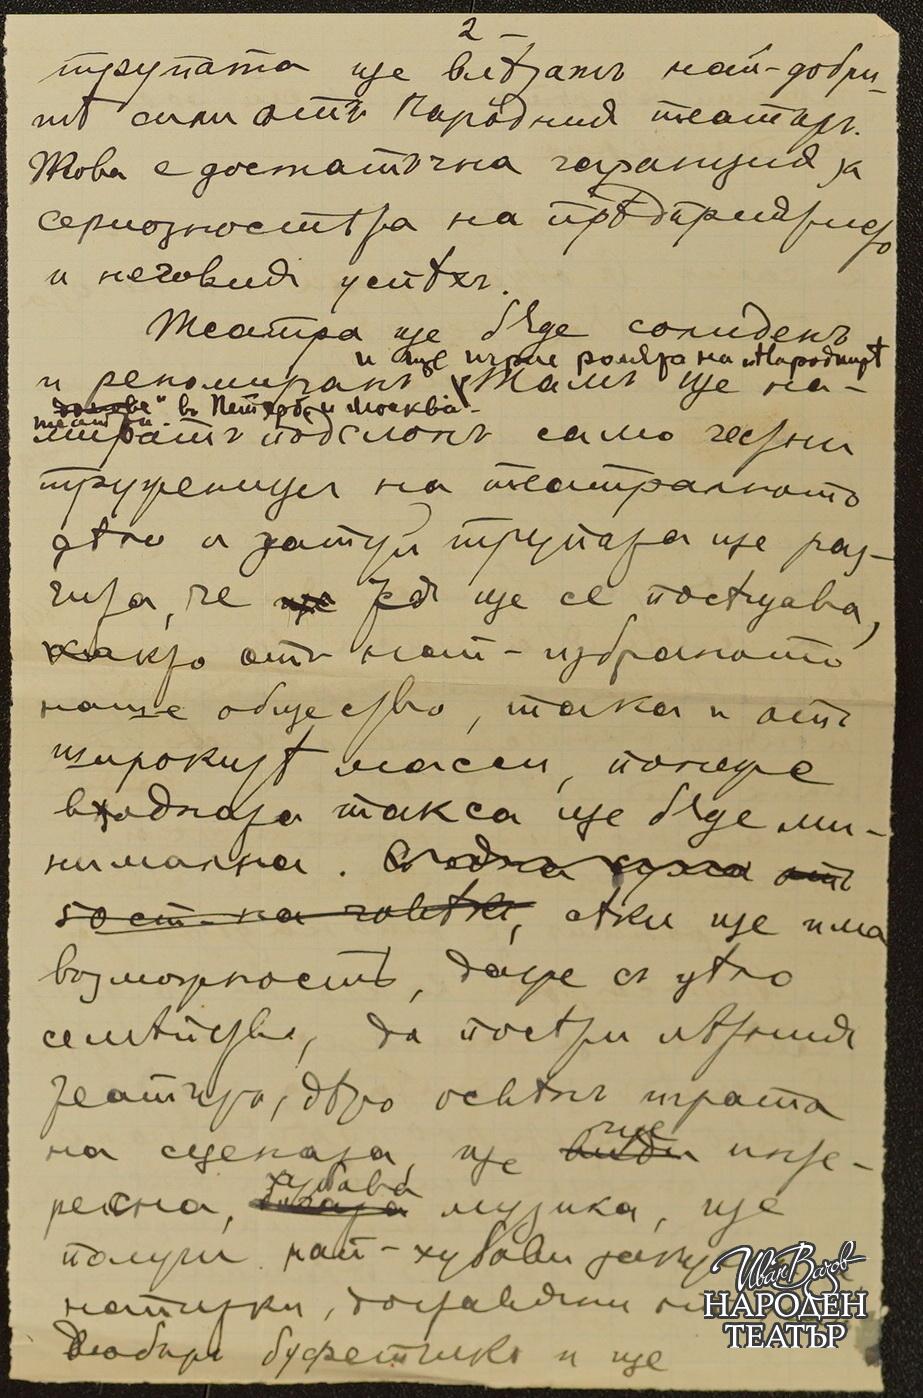 2 –
трупата ще влѣзатъ най-добри-
тѣ сили отъ Народния театъръ.
Това е достатъчна гаранция за
сериозностьта на прѣдприятието
и неговия успѣхъ.
Театра ще бѫде солиденъ
и ще играе ролята на „Народнитѣ
и рекомиранъ. Тамъ ще на-
домове" въ Петербургъ и Москва.
театри.
мератъ подслонъ само честни
труженици на театралното
дѣло и затуй трупата ще раз-
чита, че ще тя ще се посѣщава,
както отъ най-избраното
наше общество, така и отъ
широкитѣ маси, понеже
входната такса ще бѫде ми-
нимална. отъ
гост на човѣкъ, сѣки ще има
возможность, даже съ цѣло
семѣйство, да посѣти лѣтния
театъръ, дѣто освѣнъ играта
на сцената, ще
ще види инте-
хубава
ресна, музика, ще
получи най-хубави закуски
напитки, доставяни
добъръ буфетчикъ и ще
Иван Вазов
НАРОДЕН
ТЕАТЪР